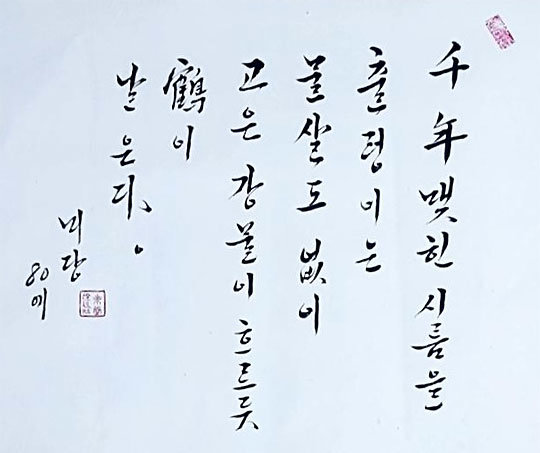 千年 맺힌 시름을
출렁이는
물살도 없이
고은 강물이 흐르듯
鶴이
날은다.
미당
80에